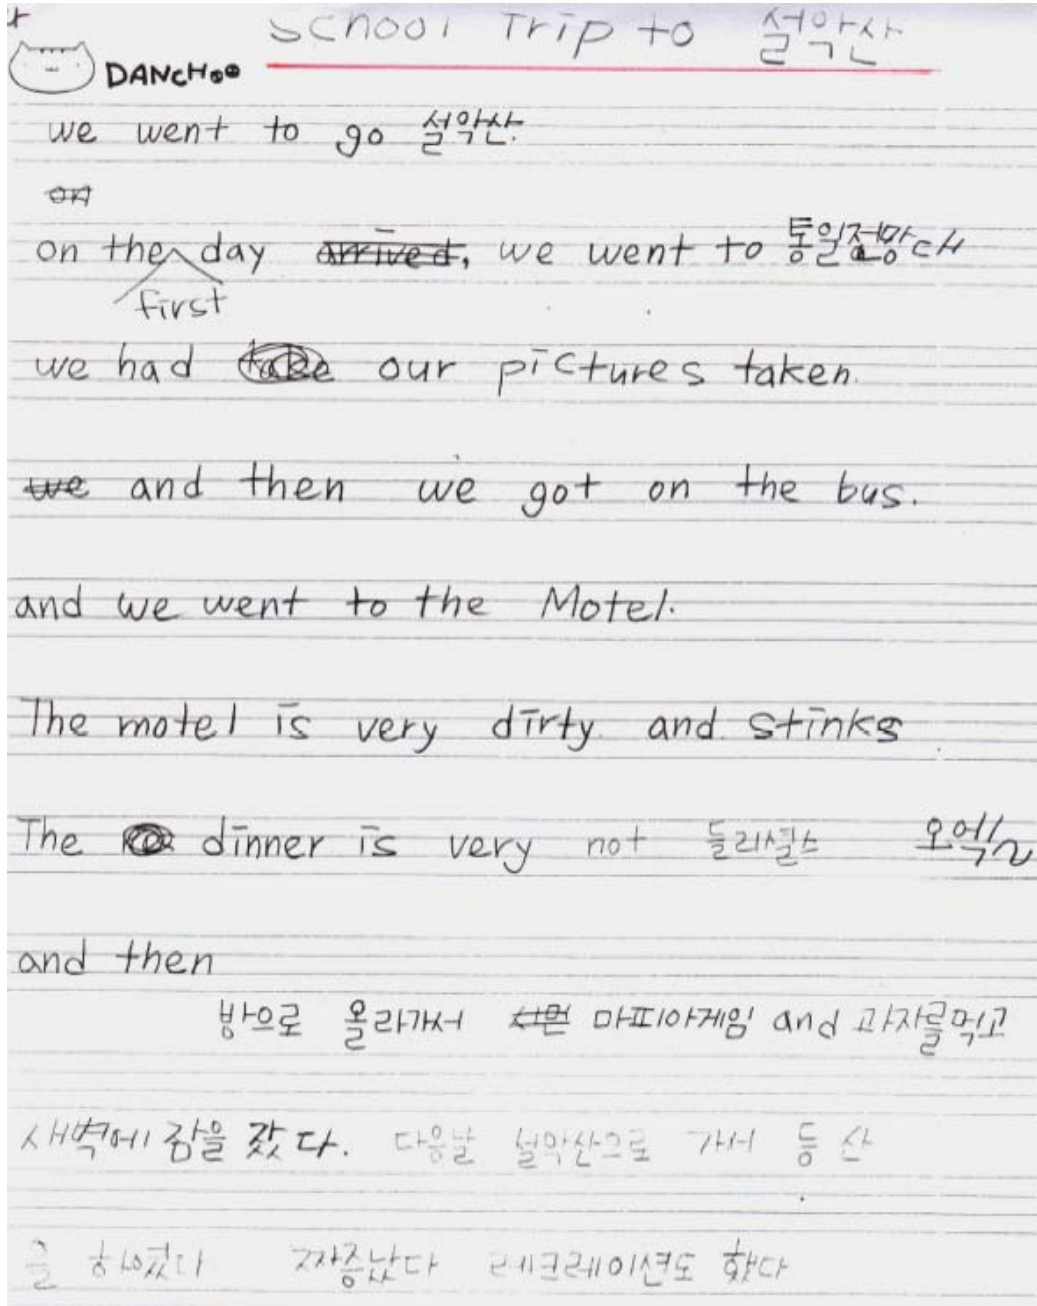 School Trip to 설악산
DANCHOO
we went to go 설악산.
on
on the day arrived, we went to 통일전망대
first
we had take our pictures taken.
we and then we got on the bus.
and we went to the Motel.
The motel is very dirty and stinks
The dinner is very not 들리셜스 오엑!~
and then
방으로 올라가서 마피아게임 and 과자를먹고
새벽에 잠을 잤다. 다음날 설악산으로 가서 등산
을 하였다 짜증났다 레크레이션도 했다